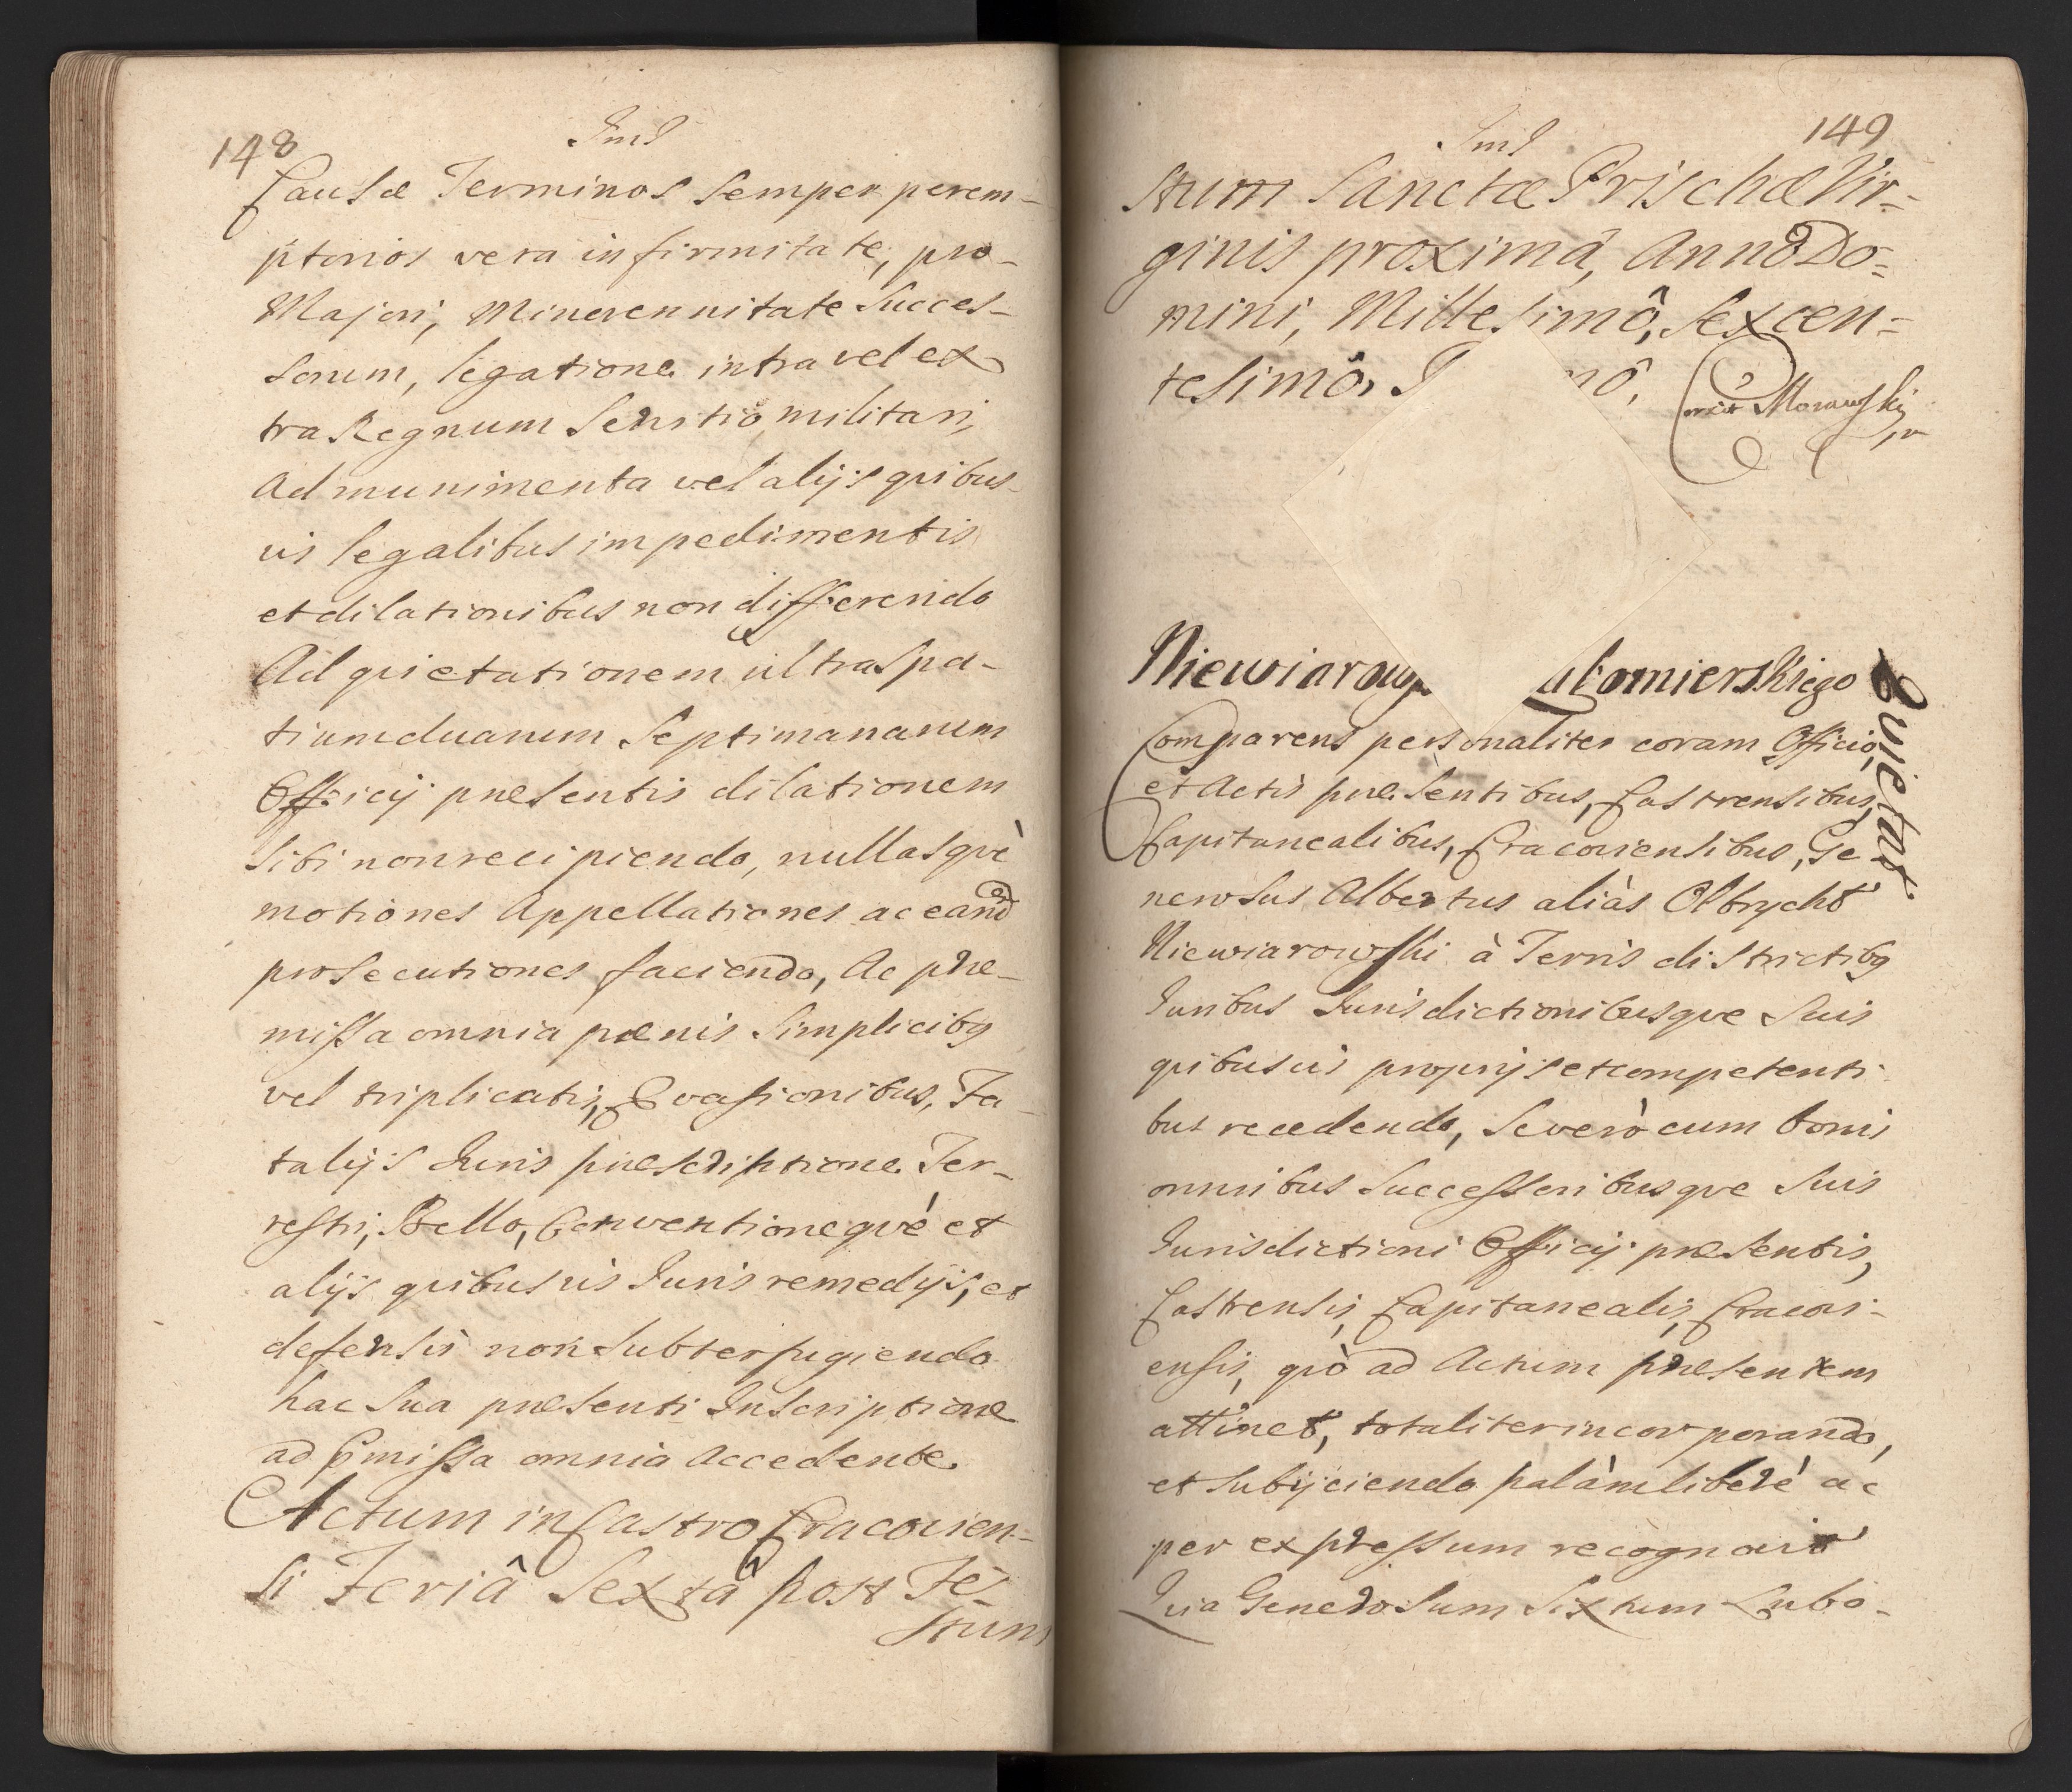 148
Ind
Causæ Terminos semper perem-
ptorios vera infirmitate, pro
Majori, Minorennitate Succes-
sorum, legatione intra vel ex
tra Regnum Servitio militari,
Ad munimenta vel alijs quibus-
vis legalibus impedimentis
et dilationibus non differendo
Ad quietationem ultra spa-
tium duarum Septimanarum
Officij præsentis dilationem
sibi non recipiendo, nullasquè
motiones Appellationes ac eand
prosecutiones faciendo, Ac præ-
missa omnia pænis simplicibq
vel triplicatis, Evasionibus, Fa-
talijs Juris præscriptione Ter-
restri, Bello, Conventionequè et
alijs quibusvis Juris remedijs, et
defensis non subterfugiendo
hac sua præsenti Inscriptione
ad pmissa omnia Accedente.
Actum in Castro Cracovien-
si Feriâ Sextâ post Fe-
stum
149
Ind
stum Sanctæ Prischæ Vir=
ginis proximâ, Anno Do=
mini, Millesimô, Sexcen=
tesimô, mô,
Morawski
Niewiarows Lubomierskiego
Quietat
Comparens personaliter coram Officio,
et Actis præsentibus, Castrensibus,
Capitanealibus, Cracoviensibus, Ge
nerosus Albertus aliàs Olbrycht
Niewiarowski à Terris districtibq
Juribus Jurisdictionibusque suis
quibusvis proprijs et competenti
bus recedendo, severò cum bonis
omnibus Successoribusque suis
Jurisdictioni Officij præsentis,
Castrensis, Capitanealis, Cracovi-
ensis, quò ad Actum præsentem
attinet, totaliter incorporando,
et subijciendo palàm liberè ac
per expressum recognovit
Quia Generosum Sixtum Lubo-